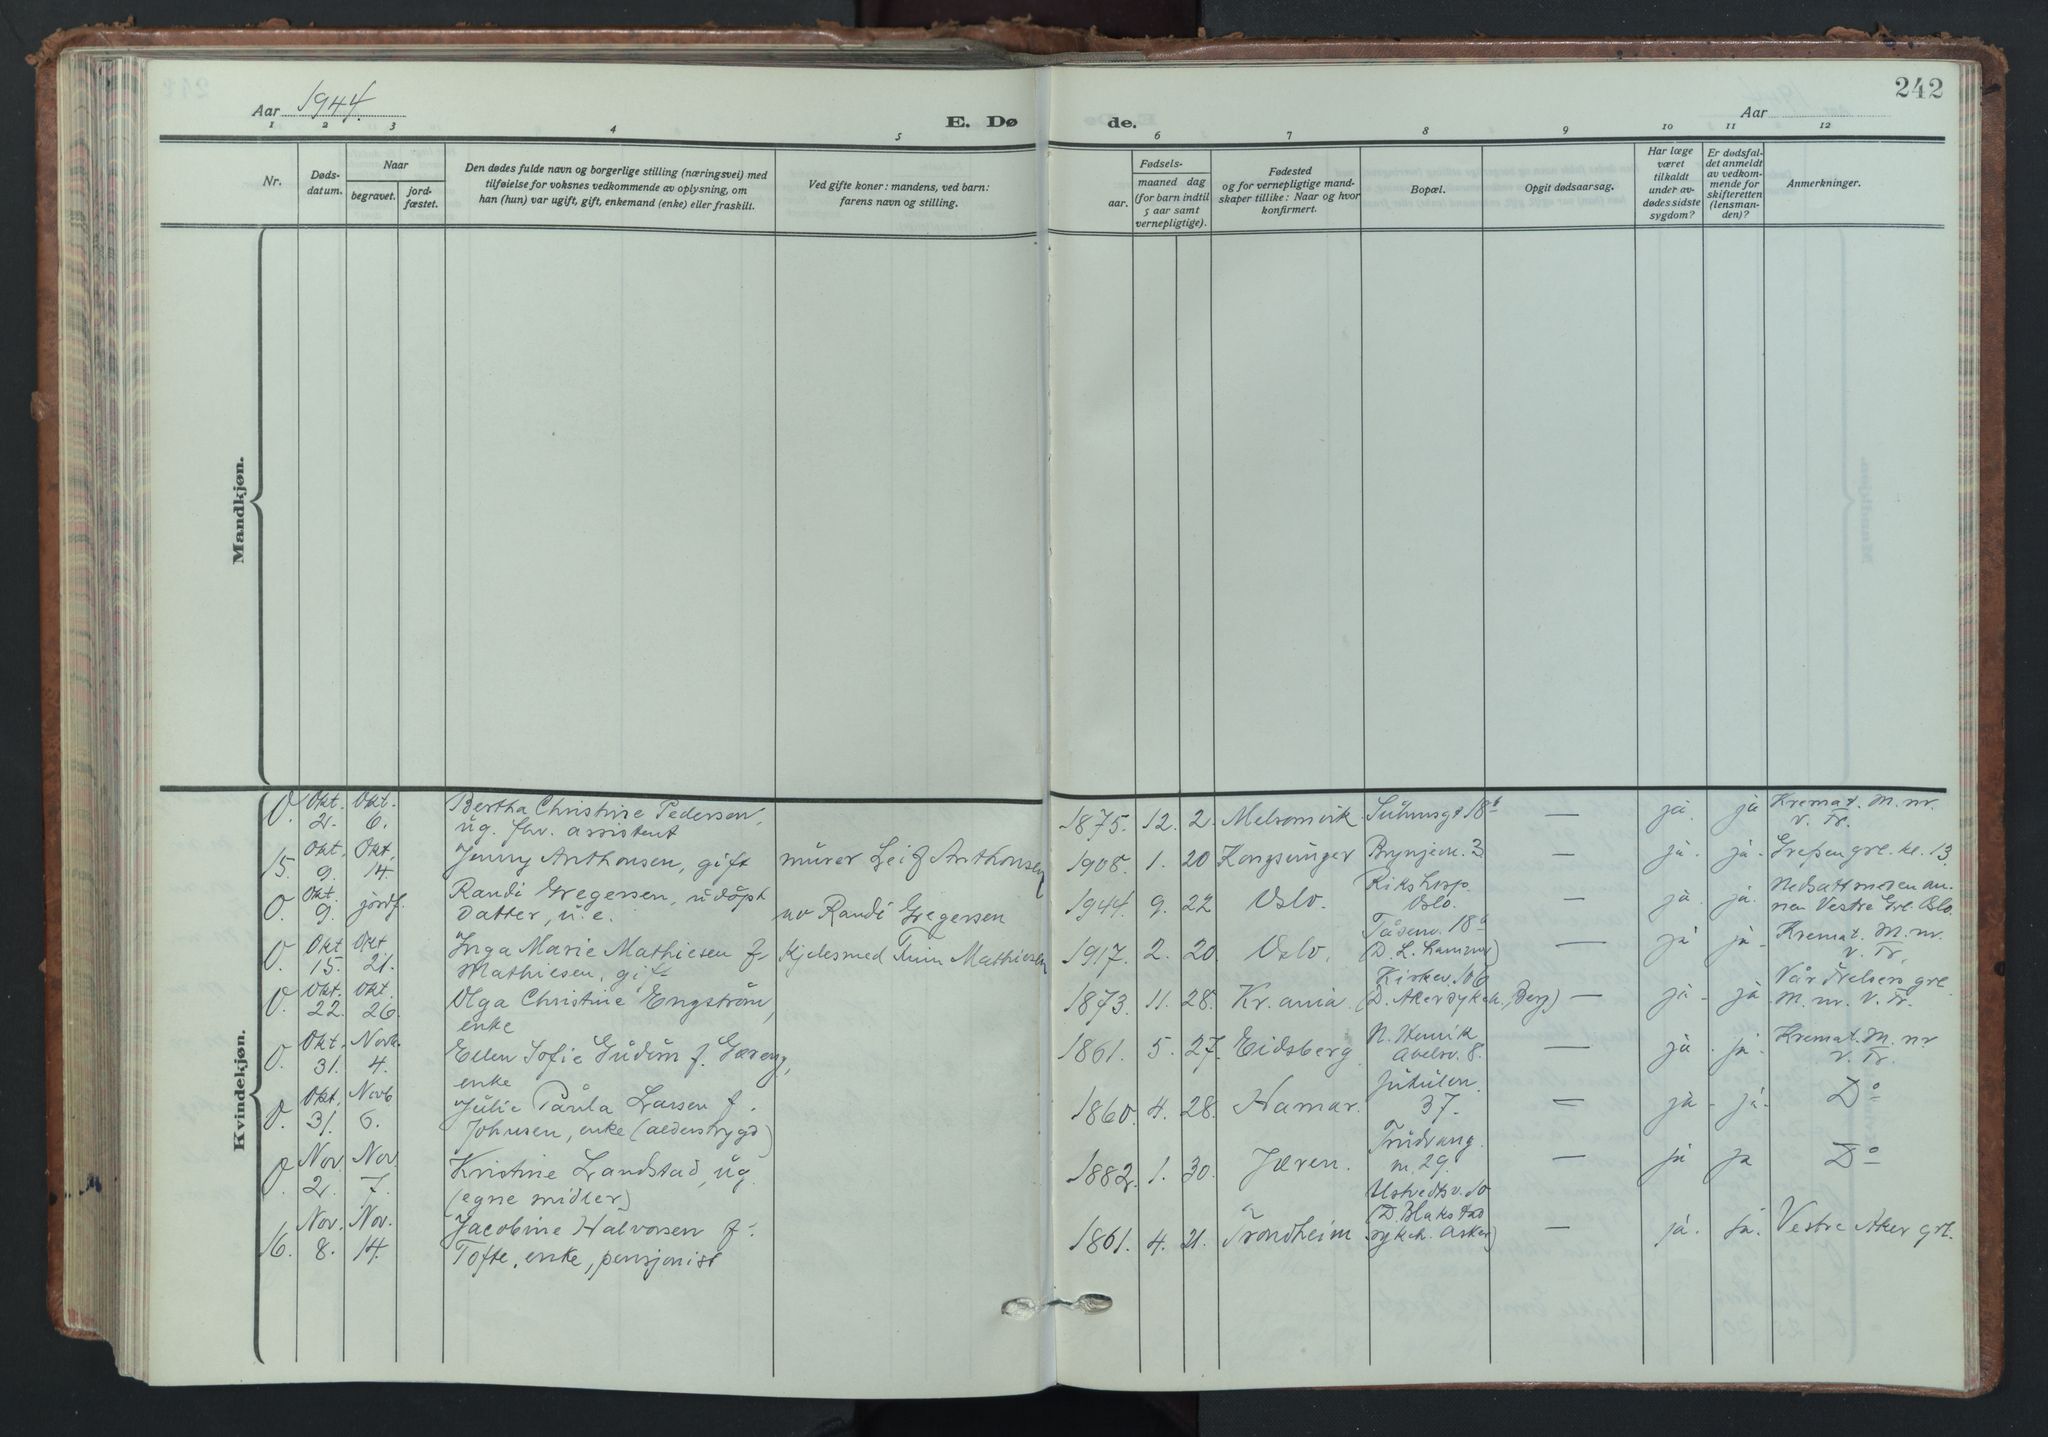 Aar 1944.
E. Døde.
Aar
242
1 2 3 4 5 6 7 8 9 10 11 12
Nr.
Døds-
datum.
Naar
begravet.
jord-
fæstet.
Den dødes fulde navn og borgerlige stilling (næringsvei) med
tilføielse for voksnes vedkommende av oplysning, om
han (hun) var ugift, gift, enkemand (enke) eller fraskilt.
Ved gifte koner: mandens, ved barn:
farens navn og stilling.
Fødsels-
aar.
maaned dag
(for barn indtil
5 aar samt
vernepligtige).
Fødested
og for vernepligtige mand-
skaper tillike: Naar og hvor
konfirmert.
Bopæl.
Opgit dødsaarsag.
Har læge
været
tilkaldt
under av-
dødes sidste
sygdom?
Er dødsfal-
det anmeldt
av vedkom-
mende for
skifteretten
(lensman-
den)?
Anmerkninger.
Mandkjøn.
Kvindekjøn.
0. Okt. 2. Okt. 6. Bertha Christine Pedersen,
ug. fhv. assistent
1875. 12. 2. Melsomvik — ja. ja Kremat. M. nr.
v. Tr.
15. Okt. 9. Okt. 14. Jenny Anthonsen, gift murer Leif Anthonsen
1908. 1. 20 Kongsvinger Brynjev. 3 — ja. ja. Grefsen grl. kl. 13
0. Okt. 9. jordf. Randi Gregersen, udøpt
datter, u.e. av Randi Gregersen
1944. 9. 22 Oslo. Rikshosp.
Oslo. — ja. ja. Nedsatt med en an-
nen Vestre Grl. Oslo.
0. Okt 15. Okt 21. Inga Marie Mathiesen f.
Mathiesen, gift Kjelesmed Mathiesen
1917. 2. 20. Oslo. Tåsenv. 18
— ja ja. Kremat. M. nr.
v. Tr.
0. Okt. 22. Okt. 26. Olga Christine Engström,
enke
1873. 11. 28. Kr.ania Kirkev. 106
(D. Aker sykeh., Berg) — ja. ja Vår Frelsers grl.
M. nr. v. Tr.
0. Okt. 31. Novb. 4. Ellen Sofie Gudim f.
enke
1861. 5. 27. Eidsberg N. Henrik
Abelsv. 8. — ja. ja. Kremat. M. nr
v. Tr.
0. Okt. 31. Novb 6. Julie Paula Larsen f.
Johnsen, enke (alderstrygd)
1860. 4. 28. Hamar. Jutulsv.
37. — ja. ja. Do
0. Nov. 2. Nov. 7. Kristine Landstad, ug.
(egne midler)
1882. 1. 30. Jæren. Trudvang
v. 29. — ja ja Do
16. Nov. 8. Nov. 14. Jacobine Halvorsen f.
Tofte, enke, pensjonist
1861. 4. 21. Trondheim Ustvedtsv. 10
(D. Blakstad
sykeh. Asker) — ja. ja. Vestre Aker grl.